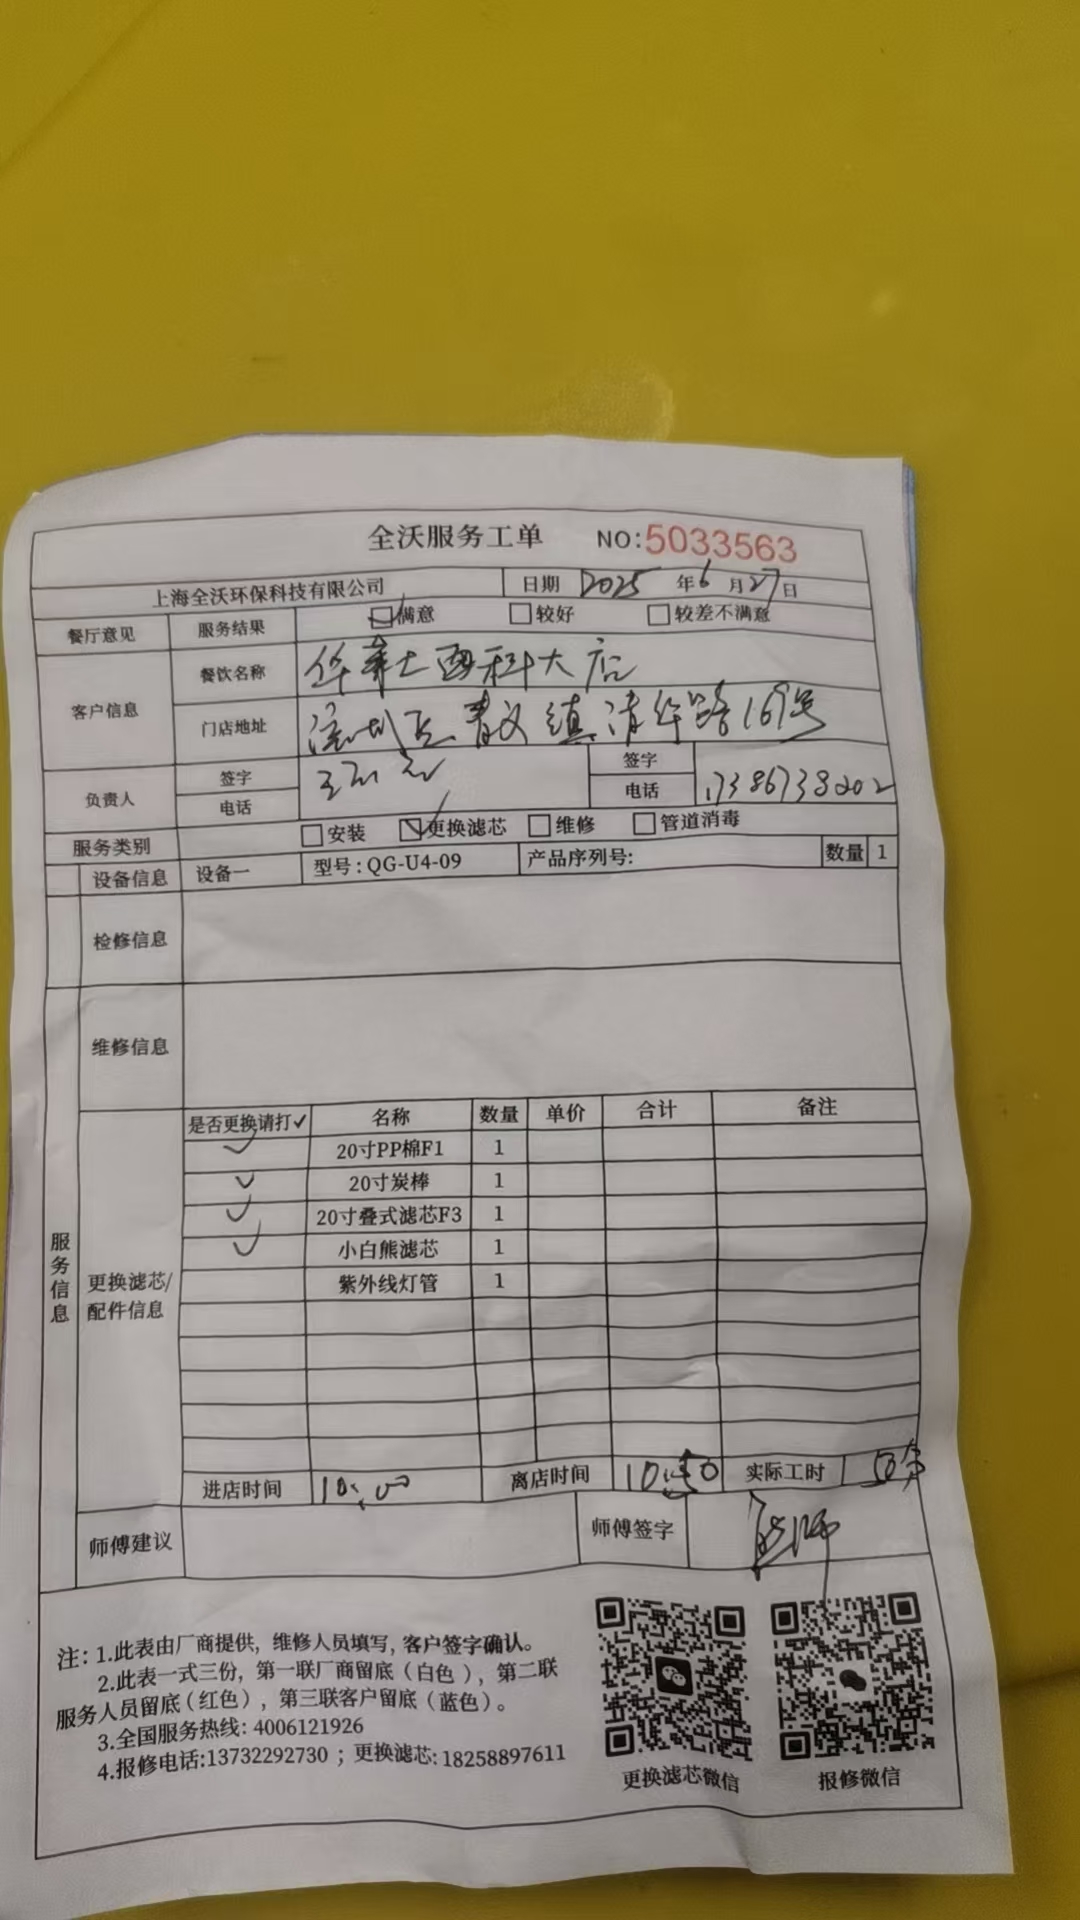 全沃服务工单 NO:5033563
上海全沃环保科技有限公司 日期 2025 年 6 月 27 日
餐厅意见 服务结果 满意 较好 较差不满意
客户信息 餐饮名称 华莱士西科大店
门店地址 涪城区青义镇清华路169号
负责人 签字 签字
电话 电话 17386738202
服务类别 安装 更换滤芯 维修 管道消毒
设备信息 设备一 型号:QG-U4-09 产品序列号: 数量 1
检修信息
维修信息
服务信息
更换滤芯/配件信息
是否更换请打✓ 名称 数量 单价 合计 备注
✓ 20寸PP棉F1 1
✓ 20寸炭棒 1
✓ 20寸叠式滤芯F3 1
✓ 小白熊滤芯 1
紫外线灯管 1
进店时间 10:00 离店时间 10:50 实际工时 50分
师傅建议 师傅签字
注:1.此表由厂商提供,维修人员填写,客户签字确认。
2.此表一式三份,第一联厂商留底(白色),第二联
服务人员留底(红色),第三联客户留底(蓝色)。
3.全国服务热线:4006121926
4.报修电话:13732292730;更换滤芯:18258897611
更换滤芯微信 报修微信